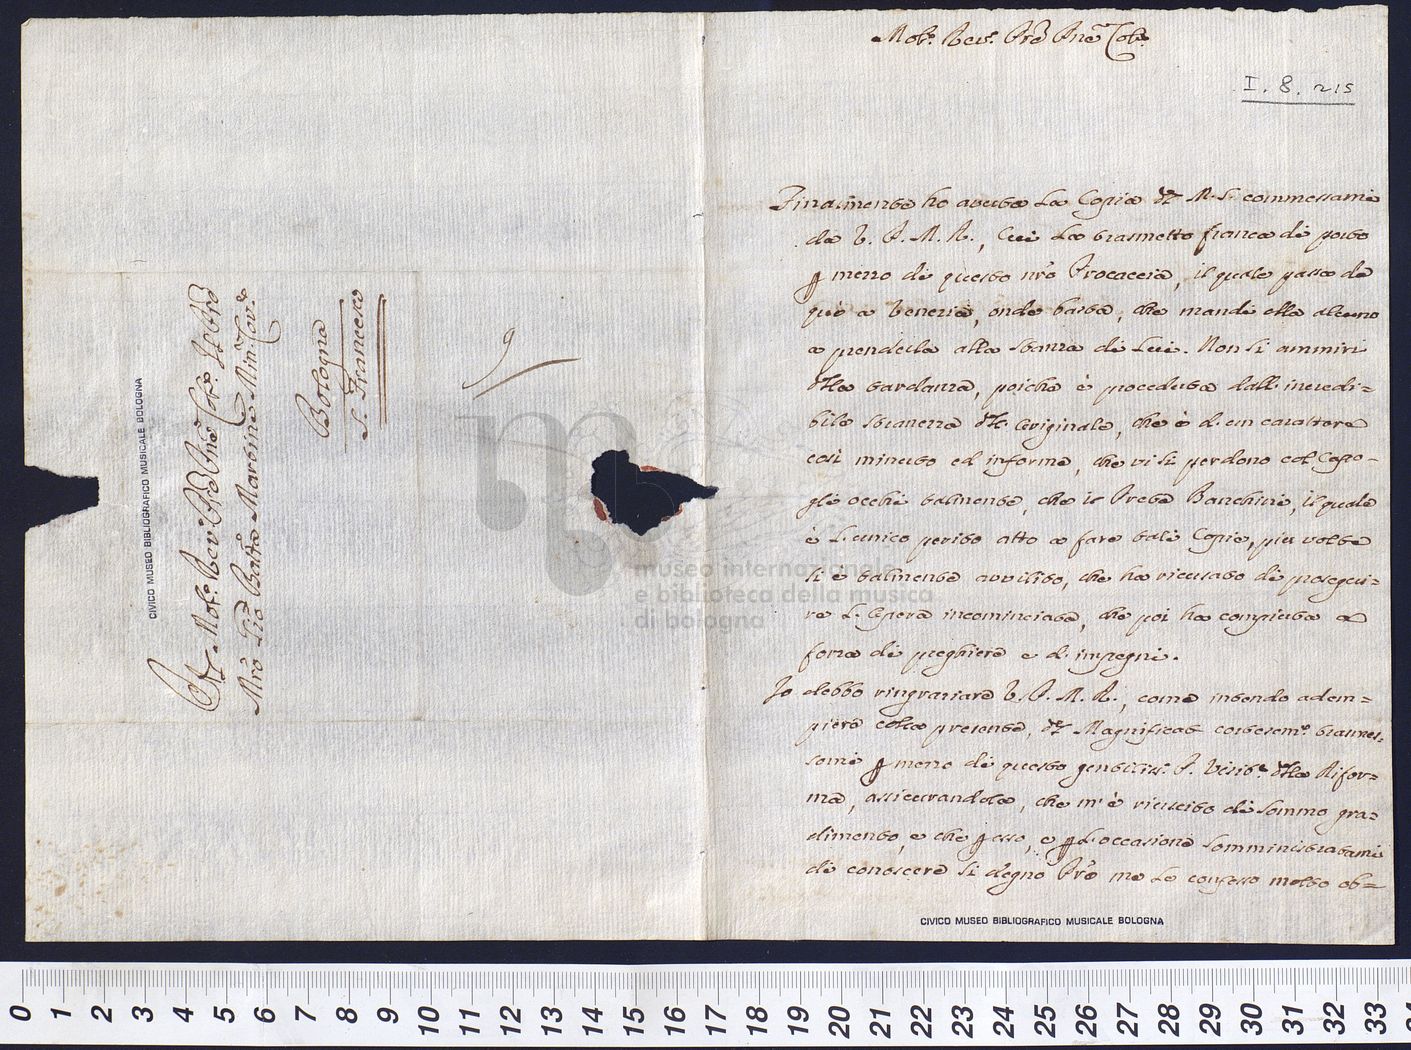 Molto Rev.do Pre Pne Col.mo
I. 8. 215
Finalmente ho avuta la Copia del M.S. commessami
da V. P. M. R., Cui la trasmetto franca di porto
per mezzo di questo nro Procaccia, il quale passa da
quì a Venezia, onde basta, che mandi ella alcuno
a prenderla alla stanza di Lui. Non si ammiri
della tardanza, poiche è proceduta dall' incredi=
bile stranezza dell' Originale, che è d' un carattere
così minuto ed informe, che vi si perdono col Capo
gli occhi talmente, che il Prete Banchini, il quale
è l' unico perito atto a fare tali Copie, più volte
si è talmente avvilito, che ha ricusato di prosegui=
re l' Opera incominciata, che poi ha compiuta a
forza di preghiere e d' impegni.
Io debbo ringraziare V. P. M. R., come intendo adem=
piere colla presente, del Magnificat cortesem.e trasmes=
somi per mezzo di questo gentiliss. P. Visit.e della Rifor=
ma, assicurandola, che m' è riuscito di sommo gra=
dimento, e che per esso, e per l' occasione somministratami
di conoscere sì degno Pre me le confesso molto ob=
CIVICO MUSEO BIBLIOGRAFICO MUSICALE BOLOGNA
Al Molto Rev.do Pre Pne Col.mo Il Pre
Mro Gio Batta Martini Min. Conv.
Bologna
S. Francesco
CIVICO MUSEO BIBLIOGRAFICO MUSICALE BOLOGNA
museo internazionale
e biblioteca della musica
di bologna
0 1 2 3 4 5 6 7 8 9 10 11 12 13 14 15 16 17 18 19 20 21 22 23 24 25 26 27 28 29 30 31 32 33 34